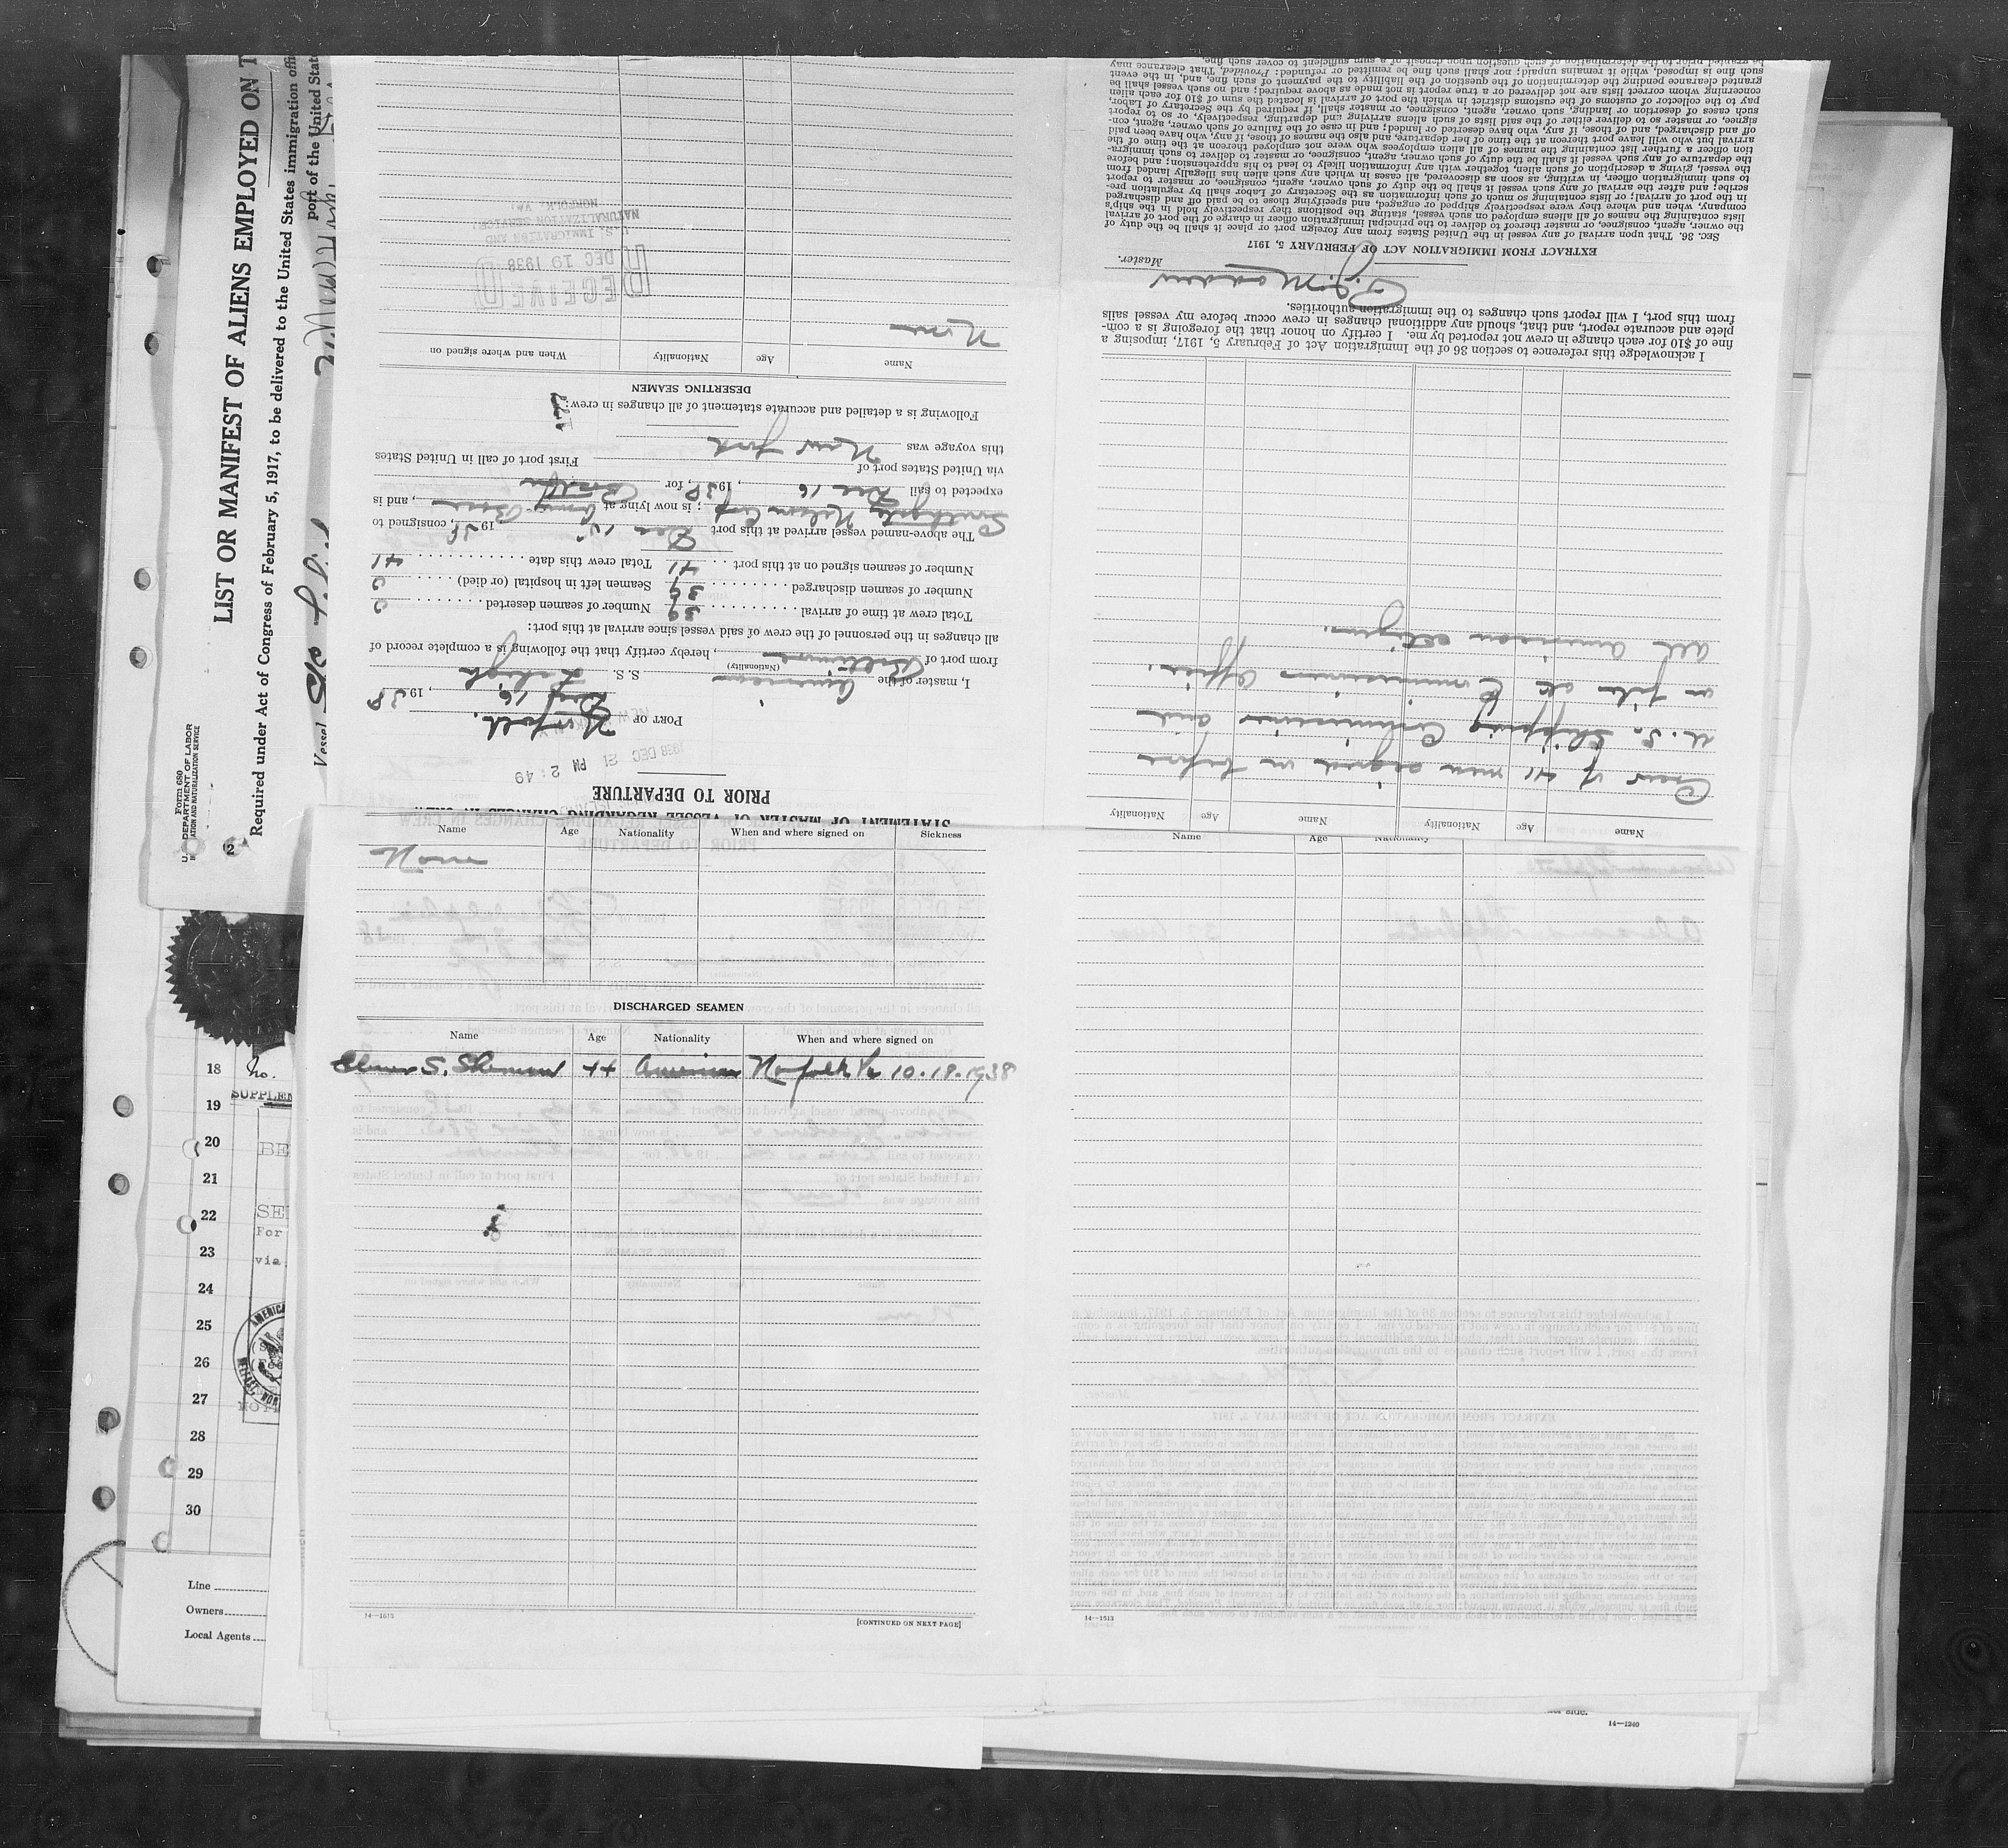 LIST OR MANIFEST OF ALIENS EMPLOYED ON T
Required under Act of Congress of February 5, 1917, to be delivered to the United States immigration offi
port of the United State
Vessel
Form 680
U. DEPARTMENT OF LABOR
ATION AND NATURALIZATION SERVICE
PRIOR TO DEPARTURE
1938 DEC 21 PM 2:49
PORT OF Norfolk.
Dec 16, 1938
I, master of the American S. S. Lehigh
(Nationality)
from port of Baltimore, hereby certify that the following is a complete record of
all changes in the personnel of the crew of said vessel since arrival at this port:
Total crew at time of arrival 39 Number of seamen deserted 0
Number of seamen discharged 39 Seamen left in hospital (or died) 0
Number of seamen signed on at this port 41 Total crew this date 41
The above-named vessel arrived at this port Dec 15 1938, consigned to
Southgate Nelson Corp; is now lying at Army Base, and is
expected to sail Dec 16, 1938, for
via United States port of First port of call in United States
this voyage was New York
Following is a detailed and accurate statement of all changes in crew:
DESERTING SEAMEN
Name Age Nationality When and where signed on
None
RECEIVED
DEC 19 1938
U.S. IMMIGRATION AND
NATURALIZATION SERVICE.
NORFOLK, VA.
Name Age Nationality Name Age Nationality
Crew of 41 men signed on before
U.S. Shipping Commissioner and
on file at Commissioners Office.
all American citizens.
I acknowledge this reference to section 36 of the Immigration Act of February 5, 1917, imposing a
fine of $10 for each change in crew not reported by me. I certify on honor that the foregoing is a com-
plete and accurate report, and that, should any additional changes in crew occur before my vessel sails
from this port, I will report such changes to the immigration authorities.
Master.
EXTRACT FROM IMMIGRATION ACT OF FEBRUARY 5, 1917
Sec. 36. That upon arrival of any vessel in the United States from any foreign port or place it shall be the duty of
the owner, agent, consignee, or master thereof to deliver to the principal immigration officer in charge of the port of arrival
lists containing the names of all aliens employed on such vessel, stating the positions they respectively hold in the ship's
company, when and where they were respectively shipped or engaged, and specifying those to be paid off and discharged
in the port of arrival; or lists containing so much of such information as the Secretary of Labor shall by regulation pre-
scribe; and after the arrival of any such vessel it shall be the duty of such owner, agent, consignee, or master to report
to such immigration officer, in writing, as soon as discovered, all cases in which any such alien has illegally landed from
the vessel, giving a description of such alien, together with any information likely to lead to his apprehension; and before
the departure of any such vessel it shall be the duty of such owner, agent, consignee, or master to deliver to such immigra-
tion officer a further list containing the names of all alien employees who were not employed thereon at the time of the
arrival but who will leave port thereon at the time of her departure, and also the names of those, if any, who have been paid
off and discharged, and of those, if any, who have deserted or landed; and in case of the failure of such owner, agent, con-
signee, or master so to deliver either of the said lists of such aliens arriving and departing, respectively, or so to report
such cases of desertion or landing, such owner, agent, consignee, or master shall, if required by the Secretary of Labor,
pay to the collector of customs of the customs district in which the port of arrival is located the sum of $10 for each alien
concerning whom correct lists are not delivered or a true report is not made as above required; and no such vessel shall be
granted clearance pending the determination of the question of the liability to the payment of such fine, and, in the event
such fine is imposed, while it remains unpaid; nor shall such fine be remitted or refunded: Provided, That clearance may
be granted prior to the determination of such question upon deposit of a sum sufficient to cover such fine.
Name Age Nationality When and where signed on Sickness
None
DISCHARGED SEAMEN
Name Age Nationality When and where signed on
Elmer S. Sherman 44 American Norfolk Va 10-18-1938
14—1613
[CONTINUED ON NEXT PAGE]
Name Age Nationality
14—1613
18 No.
SUPPLEM
19
20
BE
21
22
SE
For
23
via
24
25
26
27
28
29
30
Line
Owners
Local Agents
14—1240